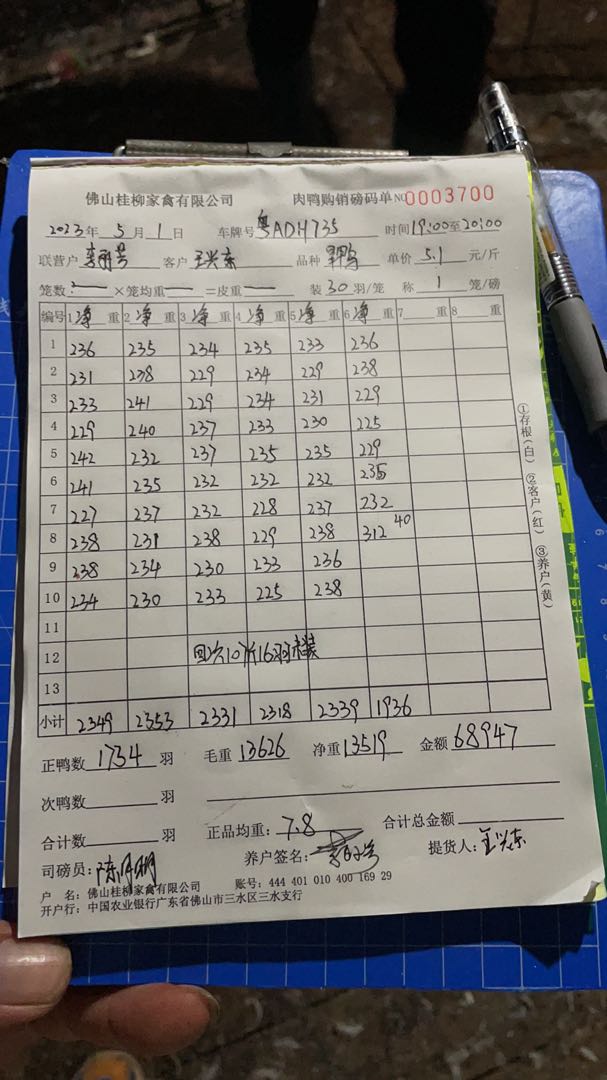 佛山桂柳家禽有限公司 肉鸭购销磅码单 NO 0003700
2023年 5月 1日 车牌号 粤ADH735 时间 19:00至20:00
联营户 客户 王兴东 品种 单价 5.1 元/斤
笼数: — ×笼均重 — =皮重 — 装 30 羽/笼 称 1 笼/磅
编号 1 净 重 2 净 重 3 净 重 4 净 重 5 净 重 6 净 重 7 重 8 重
1 236 235 234 235 233 236
2 231 238 229 234 229 238
3 233 241 229 234 231 229
4 229 240 237 233 230 225
5 242 232 237 235 235 229
6 241 235 232 232 232 235
7 227 237 232 228 237 232
8 238 231 238 229 238 312 40
9 238 234 230 233 236
10 234 230 233 225 238
11
12 回次10斤16羽
13
小计 2349 2353 2331 2318 2339 1936
正鸭数 1734 羽 毛重 13626 净重 13519 金额 68947
次鸭数 羽
合计数 羽 正品均重: 7.8 合计总金额
司磅员: 养户签名: 提货人: 王兴东
户 名: 佛山桂柳家禽有限公司 账号: 444 401 010 400 169 29
开户行: 中国农业银行广东省佛山市三水区三水支行
①存根(白) ②客户(红) ③养户(黄)